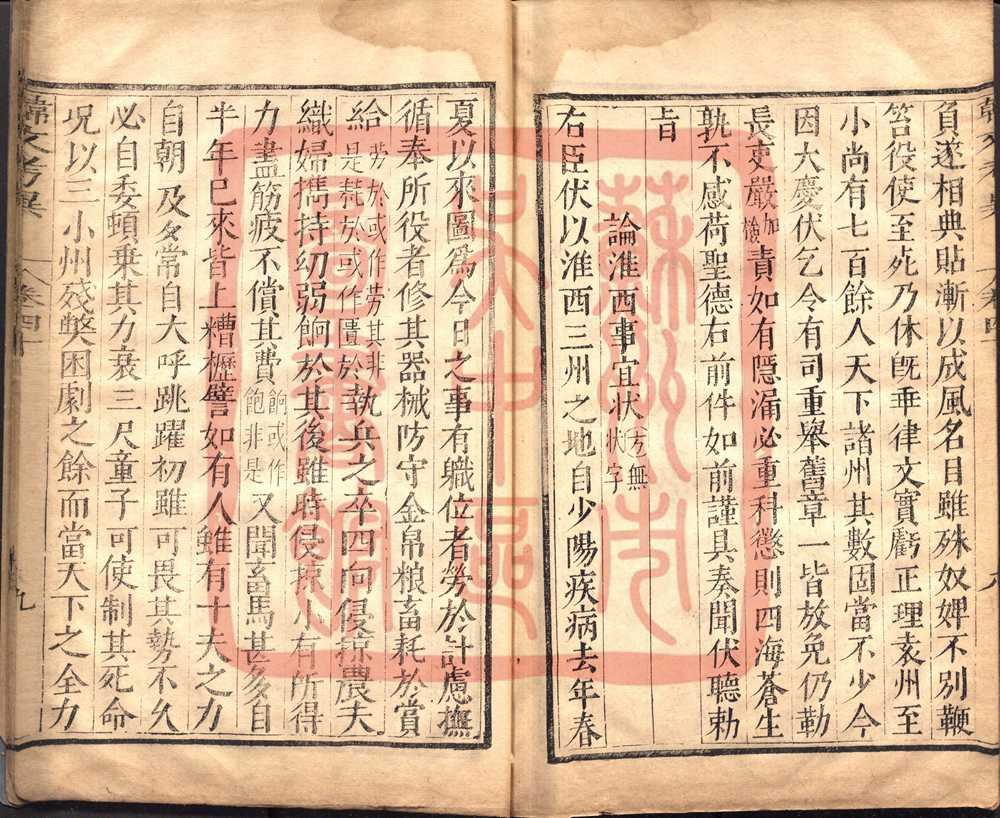 負遂相典貼漸以成風名目雖殊奴婢不別鞭
笞役使至死乃休既乖律文實虧正理袁州至
小尚有七百餘人天下諸州其數固當不少今
因大慶伏乞令有司重舉舊章一皆放免仍勒
長吏嚴加檢責如有隱漏必重科懲則四海蒼生
孰不感荷聖德右前件如前謹具奏聞伏聽勅
旨
論淮西事宜狀方無狀字
右臣伏以淮西三州之地自少陽疾病去年春
夏以來圖爲今日之事有職位者勞於計慮撫
循奉所役者修其器械防守金帛粮畜耗於賞
給勞於或作勞其非是耗於或作匱於執兵之卒四向侵掠農夫
織婦攜持幼弱餉於其後雖時侵掠小有所得
力盡筋疲不償其費餉或作飽非是又聞畜馬甚多自
半年已來皆上糟櫪譬如有人雖有十夫之力
自朝及夕常自大呼跳躍初雖可畏其勢不久
必自委頓乗其力衰三尺童子可使制其死命
况以三小州殘獘困劇之餘而當天下之全力
韓文考異
卷四十
九
蘇州市
吳中區
圖書館